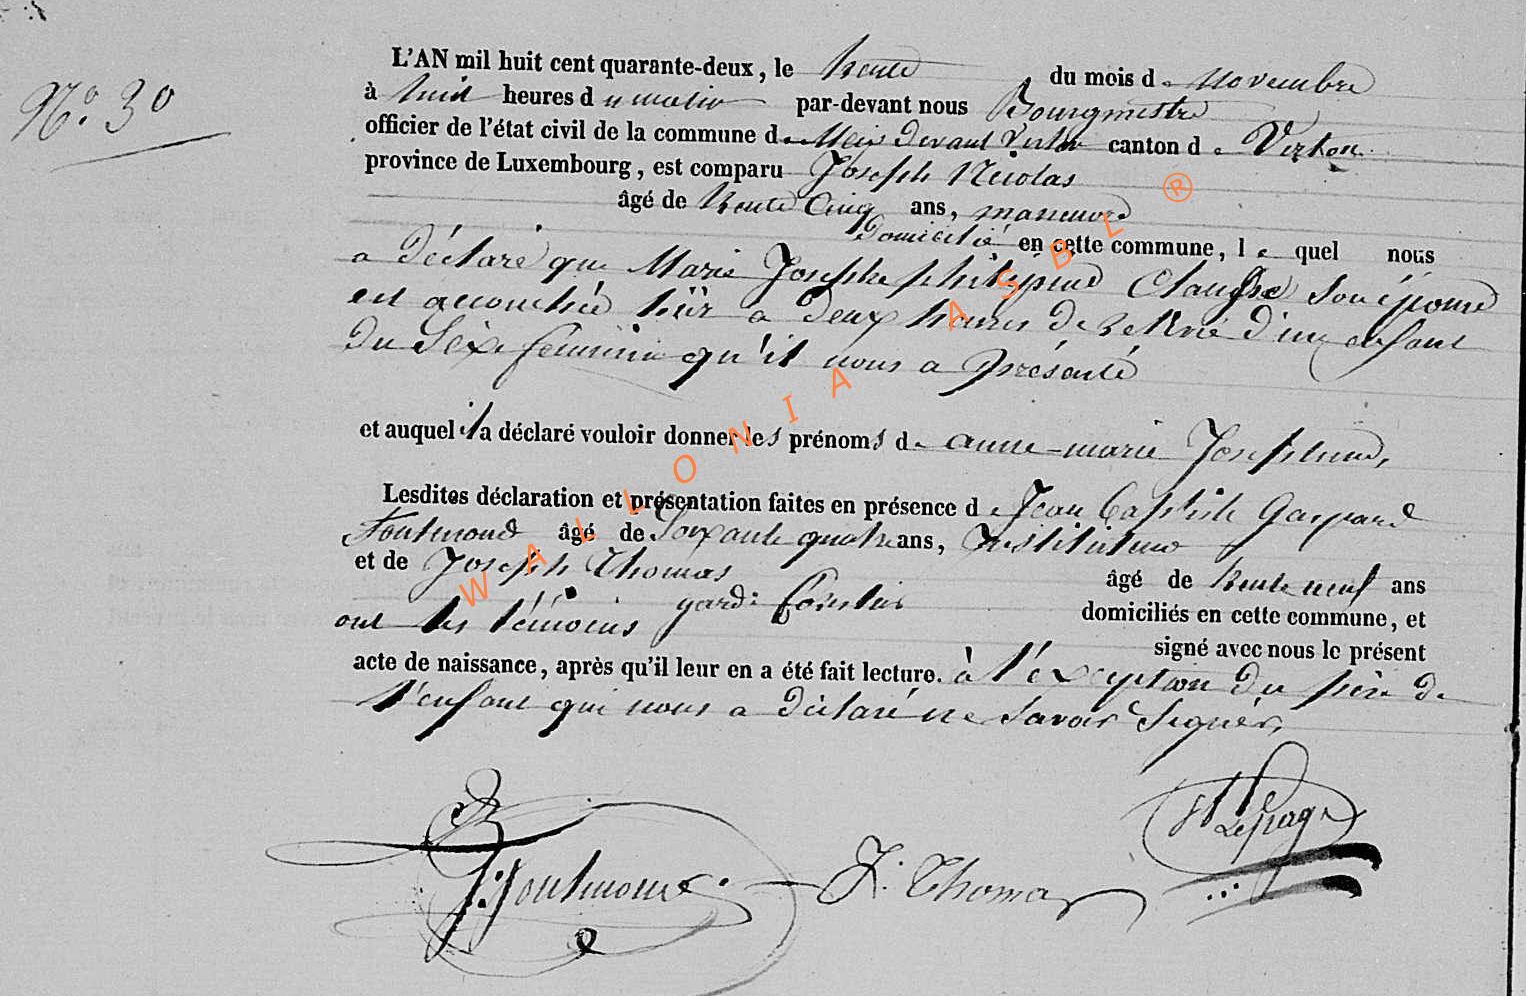 N.º 30
L'AN mil huit cent quarante-deux, le trente du mois de novembre
à huit heures du matin par-devant nous Bourgmestre
officier de l'état civil de la commune de Meix devant Virton canton de Virton
province de Luxembourg, est comparu Joseph Nicolas
âgé de trente Cinq ans, manœuvre
Domicilié en cette commune, lequel nous
a déclaré que Marie Josephe philippine Claude son épouse
est accouchée hier a deux heures de relevé d'un enfant
du Séxe féminin qu'il nous a présenté
et auquel il a déclaré vouloir donner les prénoms de anne-marie Josephine,
Lesdites déclaration et présentation faites en présence de Jean Baptiste Gaspard
Fontmond âgé de Soixante quatre ans, Instituteur
et de Joseph Thomas âgé de trente neuf ans
garde forestier domiciliés en cette commune, et
ont les témoins signé avec nous le présent
acte de naissance, après qu'il leur en a été fait lecture. à l'éxception du père de
l'enfant qui nous a déclaré ne savoir signer,
Fontmond J. Thomas Lepage
WALLONIA ASBL ®